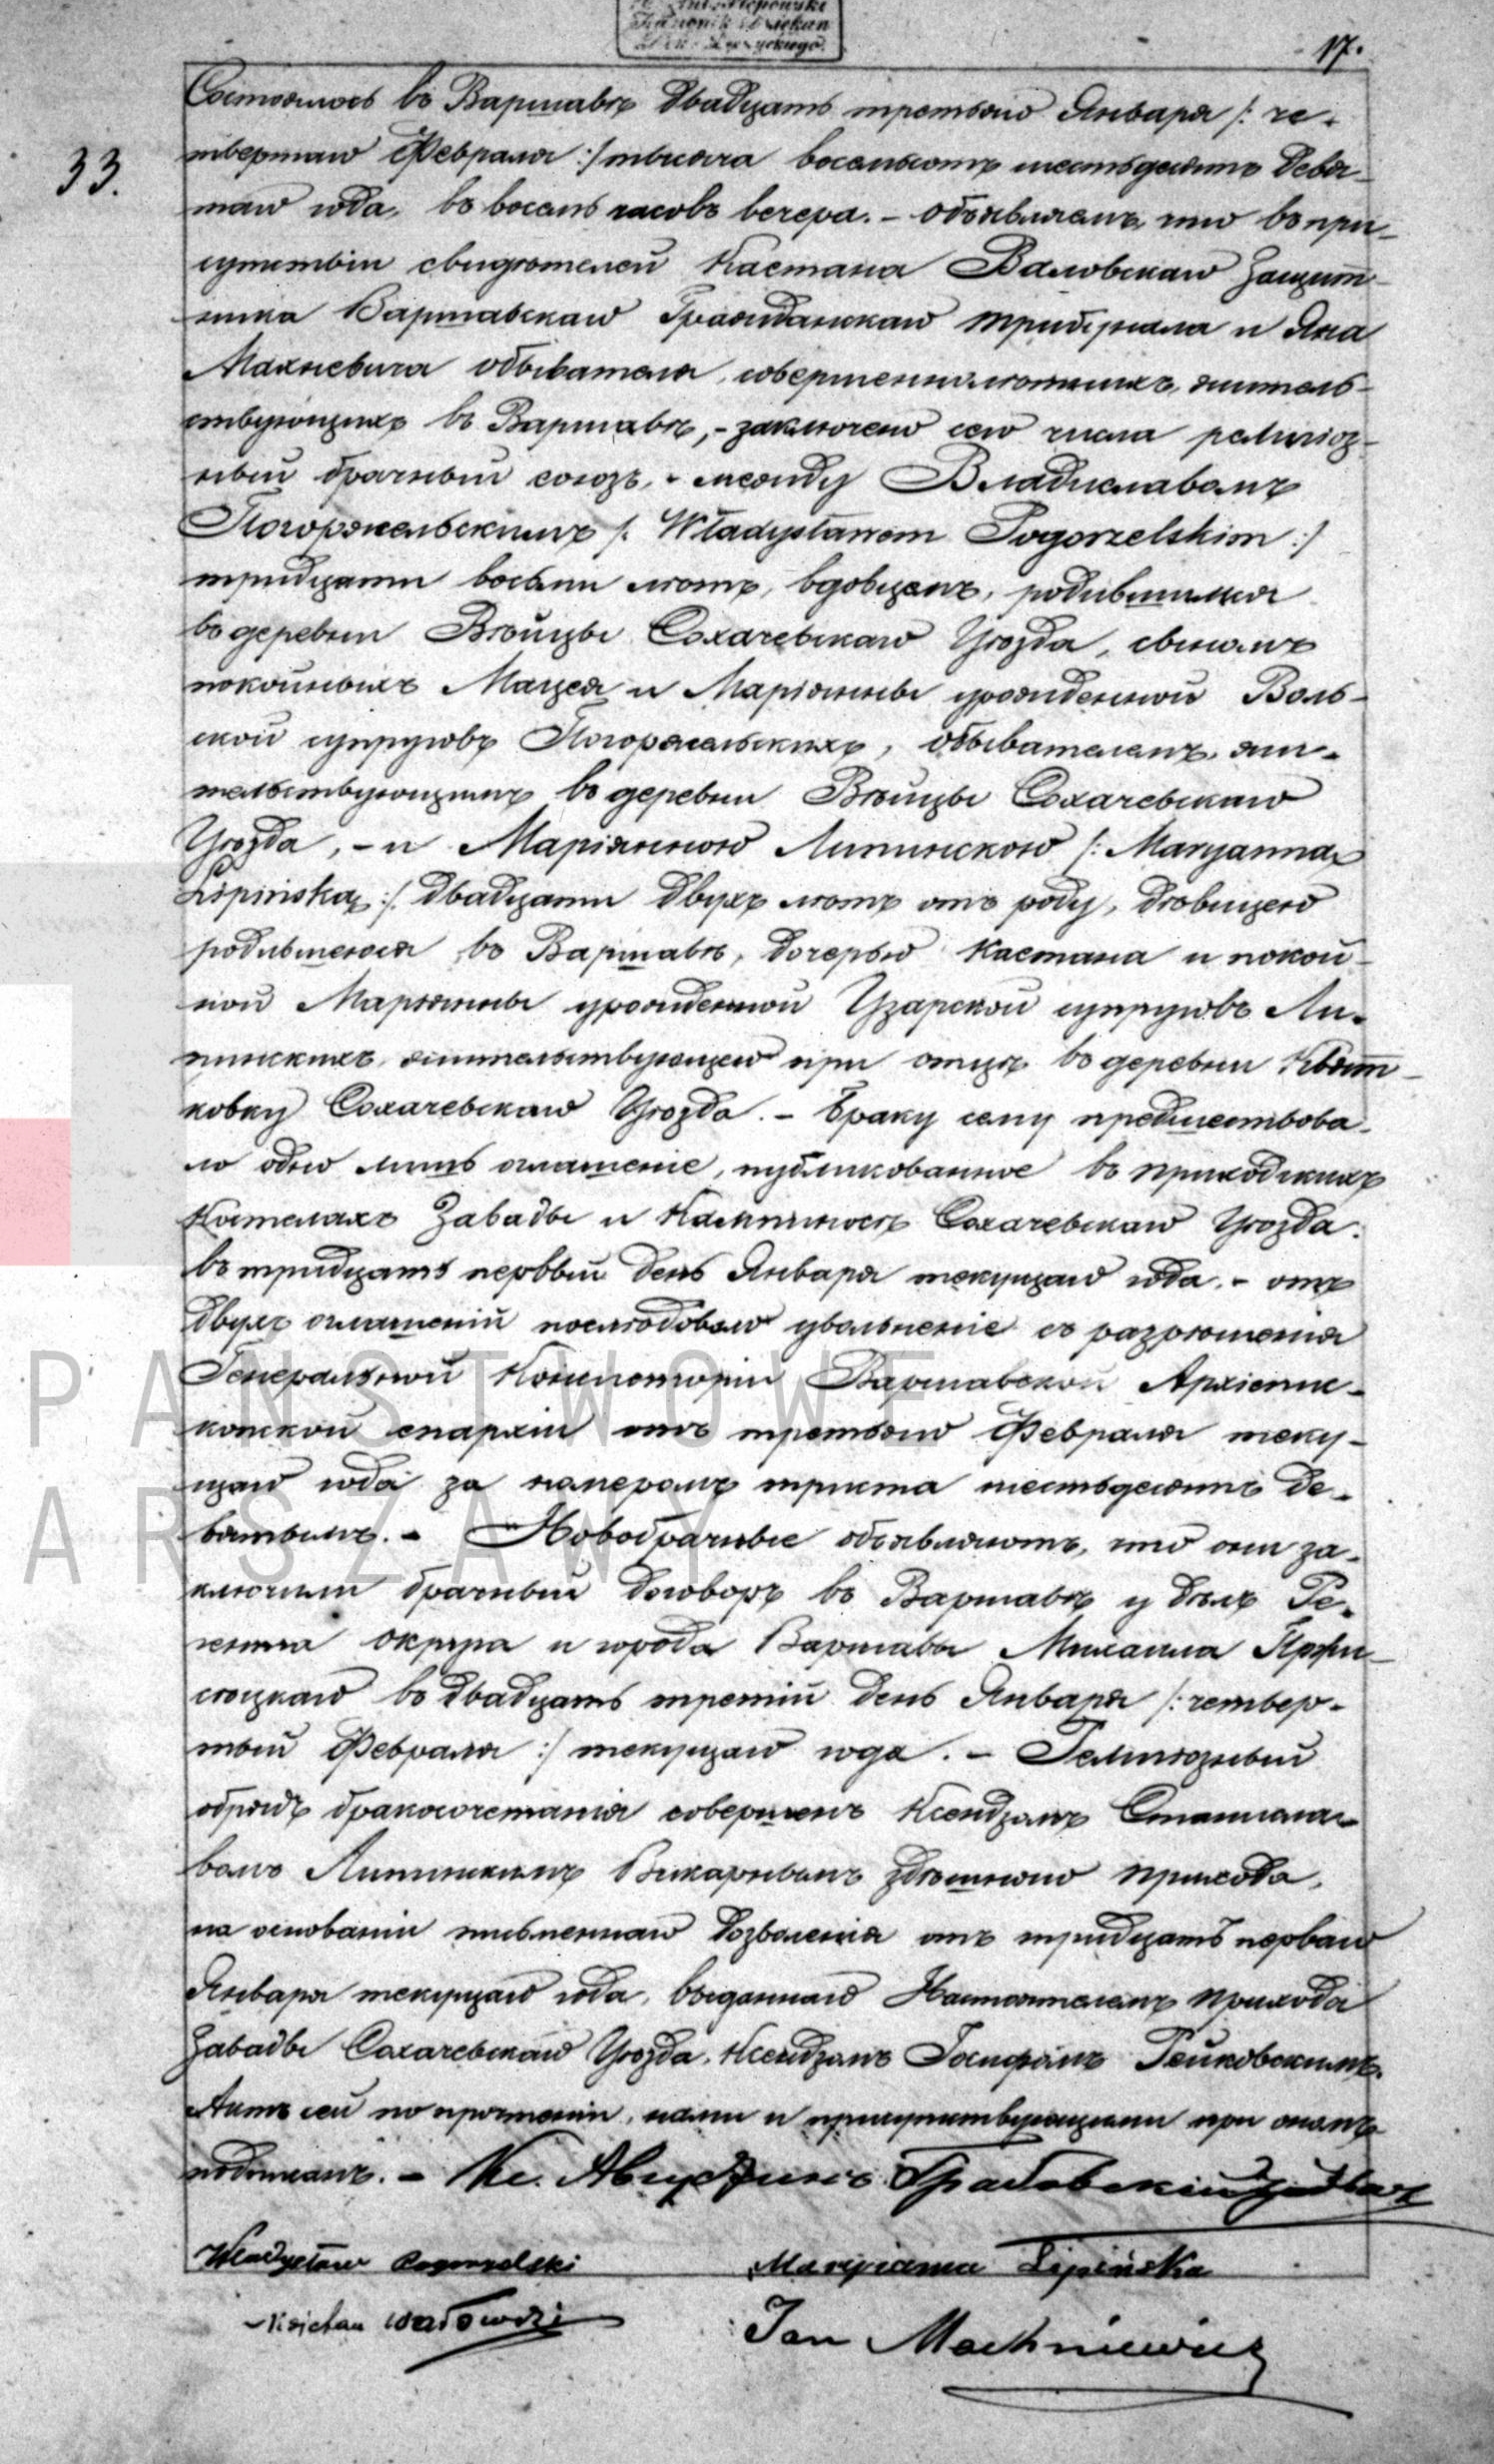 Kanonik Dziekan
17.
33.
Состоялось въ Варшавѣ двадцать третьяго Января /: че-
твертаго Февраля :/ тысяча восемьсотъ шестьдесятъ девя-
таго года, въ восемь часовъ вечера. – Объявляемъ, что въ при-
сутствіи свидѣтелей Каетана Валовскаго Защит-
ника Варшавскаго Гражданскаго Трибунала и Яна
Махневича обывателя, совершеннолѣтнихъ, житель-
ствующихъ въ Варшавѣ, – заключено сего числа религіоз-
ный брачный союзъ, – между Владиславомъ
Погоржельскимъ /: Władysławem Pogorzelskim :/
тридцати восьми лѣтъ, вдовцемъ, родившимся
въ деревни Вѣйцы Сохачевскаго Уѣзда, сыномъ
покойныхъ Мацея и Маріянны урожденной Воль-
ской супруговъ Погоржельскихъ, обывателемъ, жи-
тельствующимъ въ деревни Вѣйцы Сохачевскаго
Уѣзда, – и Маріянною Липинскою /: Maryanną
Lipińską :/ двадцати двухъ лѣтъ отъ роду, дѣвицею
родившеюся въ Варшавѣ, дочерью Каетана и покой-
ной Марянны урожденной Узарской супруговъ Ли-
пинскихъ жительствующею при отцѣ въ деревни Квят-
ковку Сохачевскаго Уѣзда. – Браку сему предшествова-
ло одно лишь оглашеніе, публикованное въ приходскихъ
Костелахъ Завады и Кампиносъ Сохачевскаго Уѣзда:
въ тридцать первый день Января текущаго года. – отъ
двухъ оглашеній послѣдовало увольненіе съ разрѣшенія
Генеральной Консисторіи Варшавской Архіепис-
копской епархіи отъ третьяго Февраля теку-
щаго года за номеромъ триста шестьдесятъ де-
вятымъ. – Новобрачные объявляютъ, что они за-
ключили брачный договоръ въ Варшавѣ у дѣлъ Ре-
гента округа и города Варшавы Михаила
въ двадцать третій день Января /: четвер-
тый Февраля :/ текущаго года. – Религіозный
обрядъ бракосочетанія совершенъ Ксендзомъ Станисла-
вомъ Липинскимъ Викарнымъ здѣшняго прихода,
на основаніи письменнаго дозволенія отъ тридцать перваго
Января текущаго года, выданнаго Настоятелемъ прихода
Завады Сохачевскаго Уѣзда, Ксендзомъ Рейковскимъ.
Актъ сей по прочтеніи, нами и присутствующими при ономъ
подписанъ. – Кс. Августинъ Грабовскій
Władysław Pogorzelski Maryianna Lipińska
Kajetan Wałowski Jan Machniewicz
PAŃSTWOWE
ARSZAWY